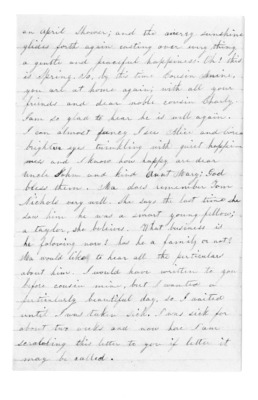 an April shower; and the merry sunshine
glides forth again casting over everything
a gentle and peaceful happiness. Oh! this
is Spring. So, by this time Cousin
you are at home again; with all your
friends and dear noble cousin Charly.
I am so glad to hear he is well again.
I can almost fancy I see Alice and
brighter eyes twinkling with quiet happiness
and I know how happy are dear
Uncle John and kind Aunt Mary; God
bless them. Ma does remember Tom
Nichols very well. She says the last time she
saw him he was a smart young fellow;
a taylor, she believes. What business is
he folowing now? has he a family or not?
Ma would like to hear all the perticular
about him. I would have written to you
before cousin mine, but I wanted a
perticularly beautiful day, so I waited
until I was taken sick. I was sick for
about two weeks and now here I am
scratching this letter to you if letter it
may be called.